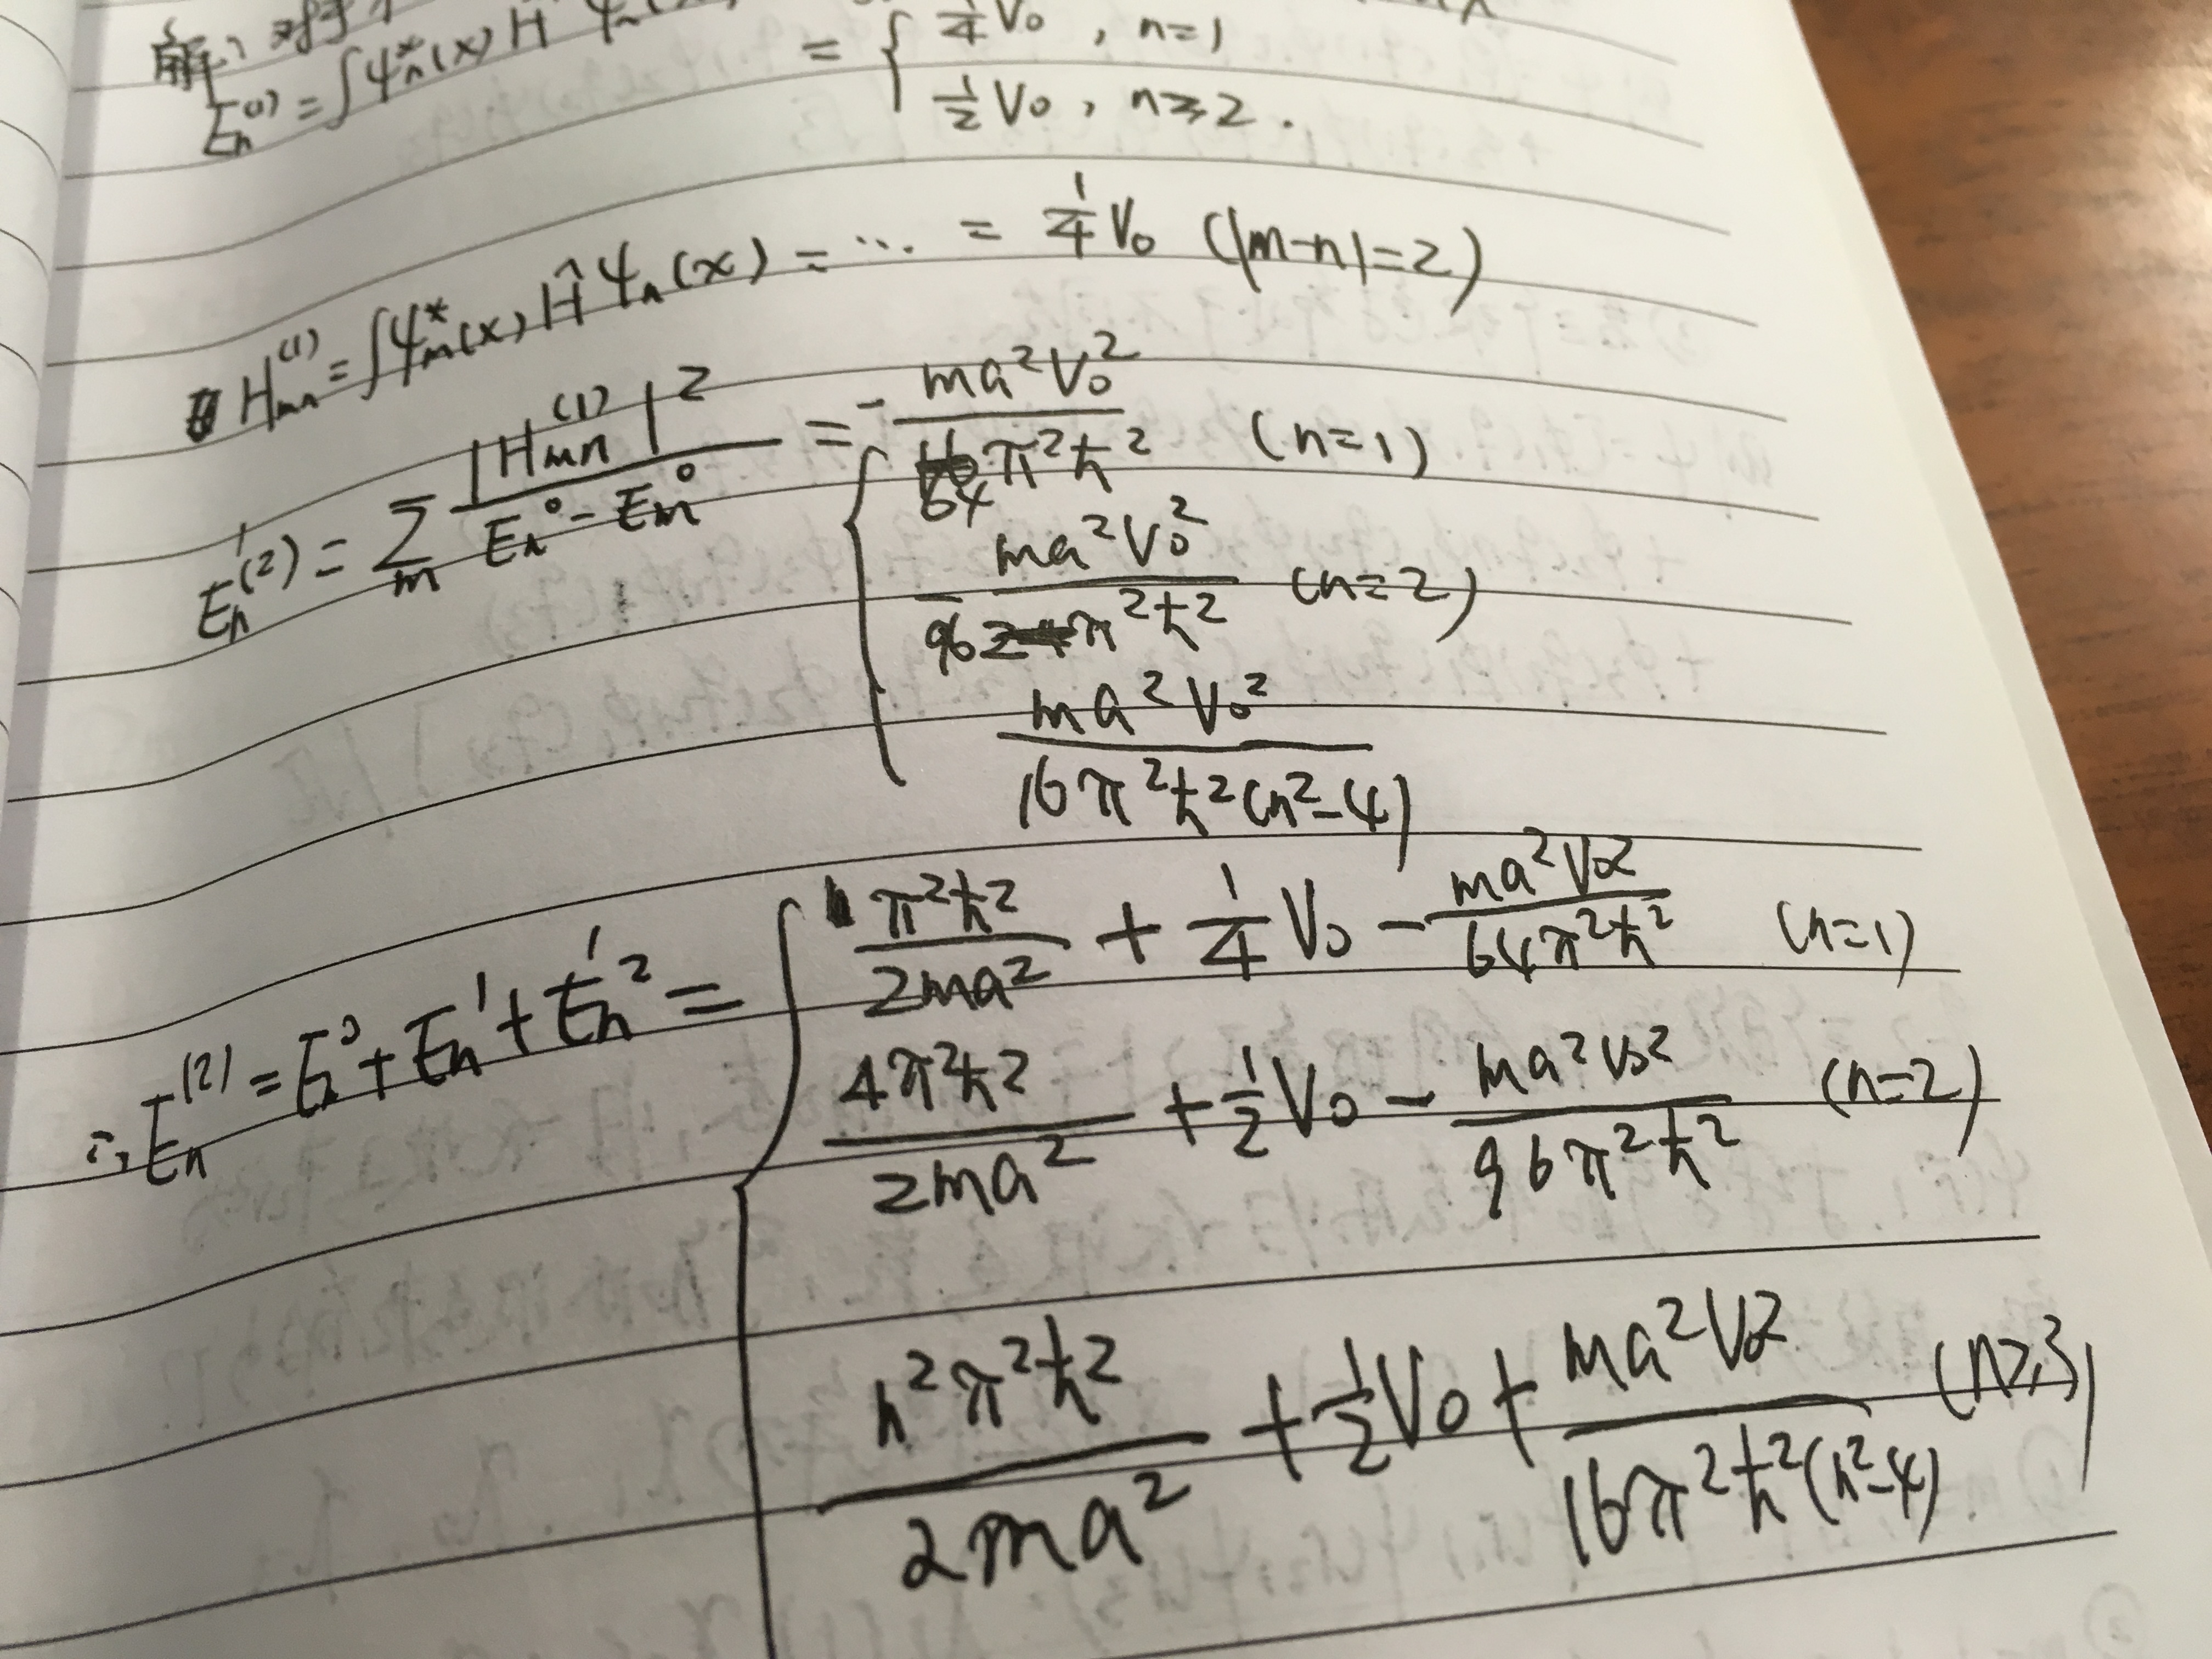 解: 对于
Eₙ⁽¹⁾ = ∫ψₙ*(x) H ψₙ = { ¼V₀ , n=1
½V₀ , n⩾2 .
Hₘₙ⁽¹⁾ = ∫ψₘ*(x) Ĥ ψₙ(x) = ... = ¼V₀ (|m-n|=2)
Eₙ'⁽²⁾ = Σₘ |Hₘₙ⁽¹⁾|² / (Eₙ⁰ - Eₘ⁰) = { - ma²V₀² / 64π²ħ² (n=1)
- ma²V₀² / 96π²ħ² (n=2)
ma²V₀² / 16π²ħ²(n²-4)
∴ Eₙ⁽²⁾ = Eₙ⁰ + Eₙ¹ + Eₙ'² = { π²ħ² / 2ma² + ¼V₀ - ma²V₀² / 64π²ħ² (n=1)
4π²ħ² / 2ma² + ½V₀ - ma²V₀² / 96π²ħ² (n=2)
n²π²ħ² / 2ma² + ½V₀ + ma²V₀² / 16π²ħ²(n²-4) (n⩾3)